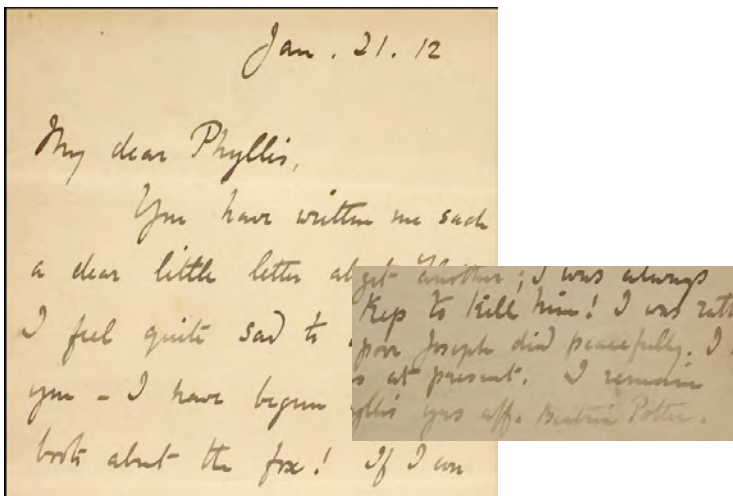 Jan. 21. 12
My dear Phyllis,
You have written me such
a dear little letter
I feel quite sad to
you – I have begun
book about the fox! If I
get another; I was always
Kep to kill him! I was
poor Joseph died peacefully. I
s at present. I remain
yllis yrs aff. Beatrix Potter.